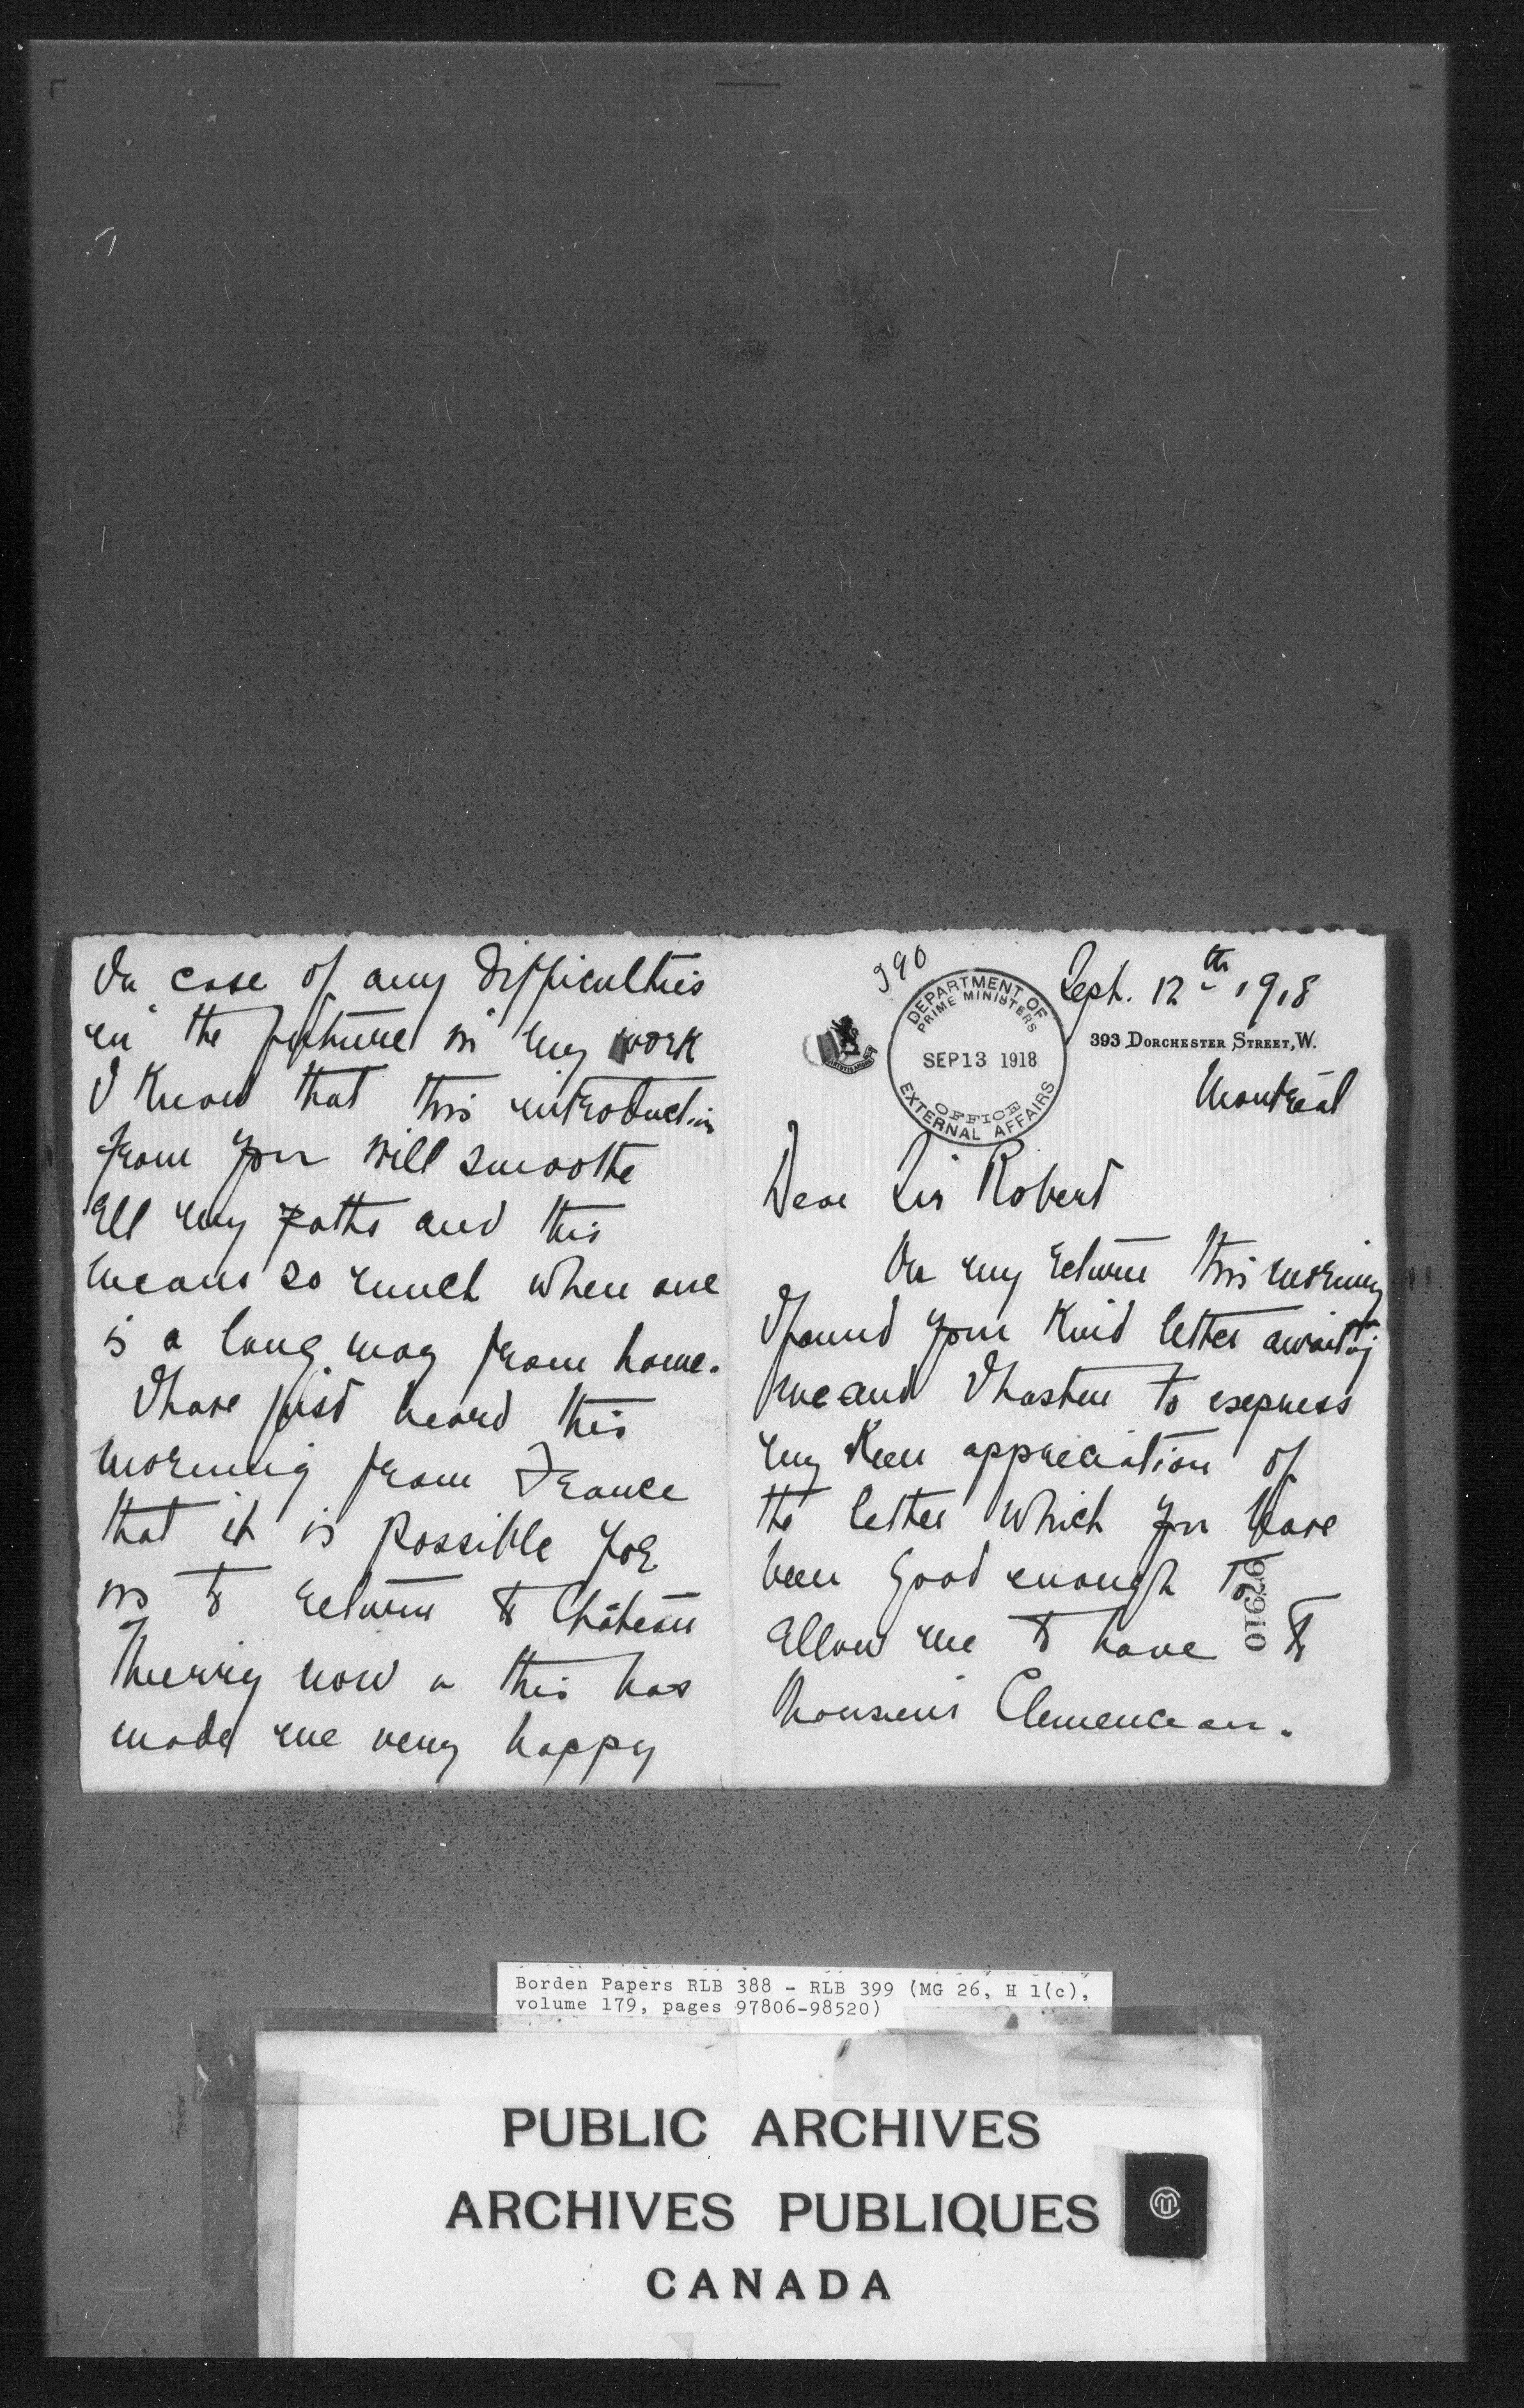 390
Sept. 12th 1918
DEPARTMENT OF
PRIME MINISTERS
SEP 13 1918
OFFICE
EXTERNAL AFFAIRS
393 DORCHESTER STREET, W.
Montreal
Dear Sir Robert
On my return this morning
I found your kind letter awaiting
me and I hasten to express
my keen appreciation of
the letter which you have
been good enough to
allow me to have to
Monsieur Clemenceau.
97910
In case of any difficulties
in the future in my work
I know that this introduction
from you will smoothe
all my paths and this
means so much when one
is a long way from home.
I have just heard this
morning from France
that it is possible for
us to return to Château
Thierry now & this has
made me very happy
Borden Papers RLB 388 - RLB 399 (MG 26, H 1(c),
volume 179, pages 97806-98520)
PUBLIC ARCHIVES
ARCHIVES PUBLIQUES
CANADA